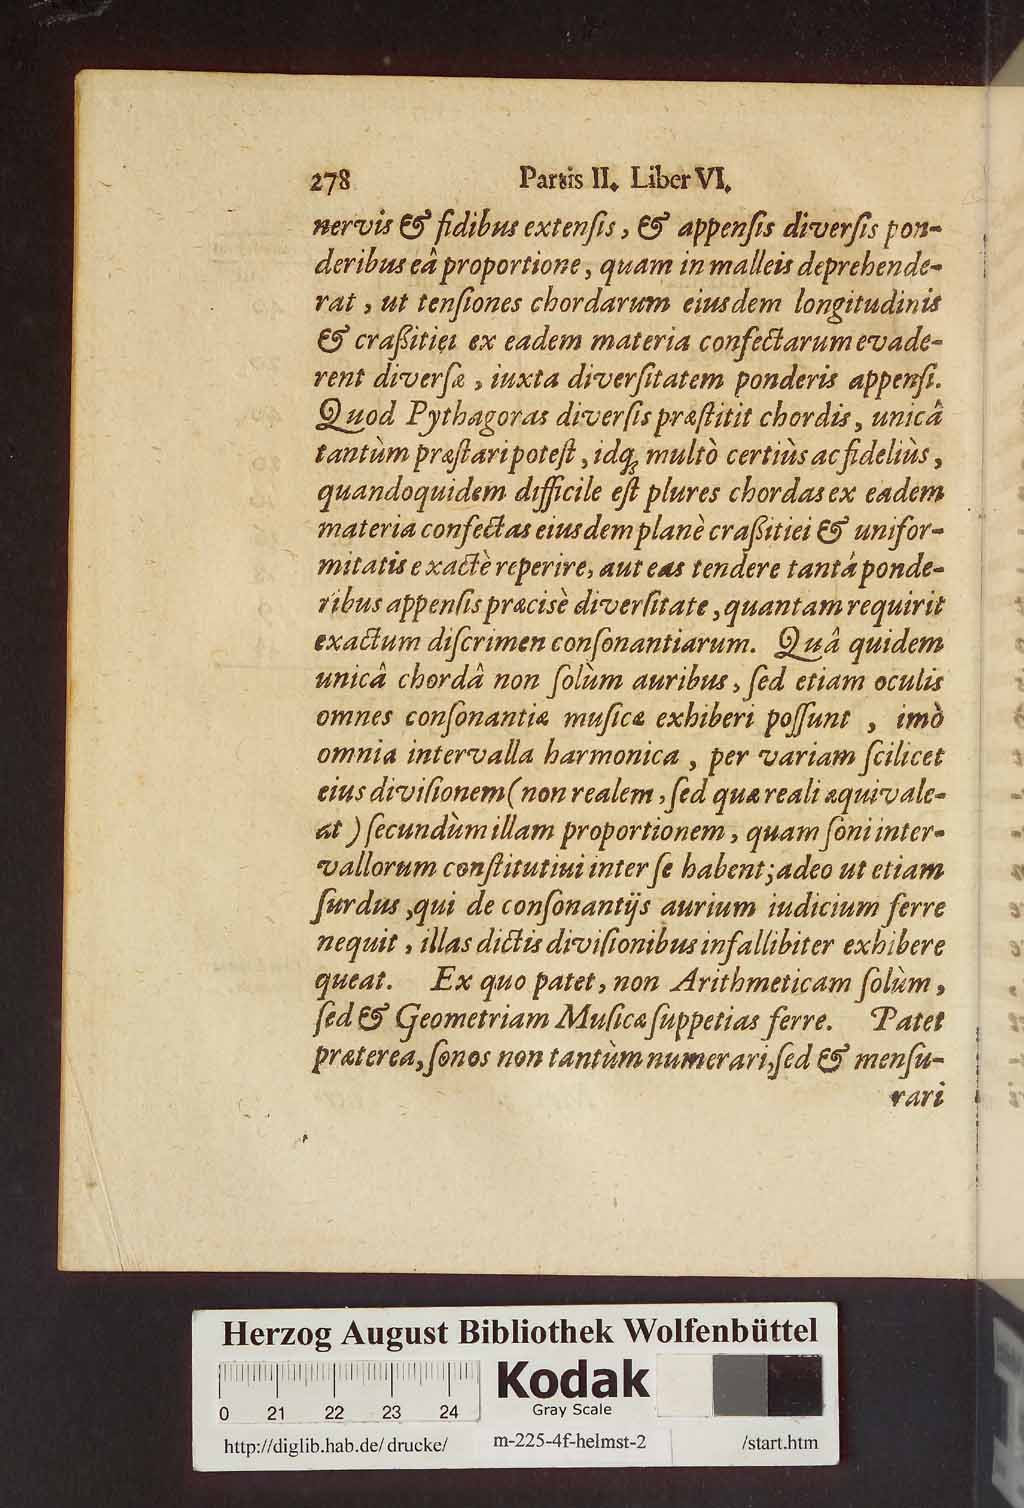 278 Partis II. Liber VI.
nervis & fidibus extenſis, & appenſis diverſis pon-
deribus eâ proportione, quam in malleis deprehende-
rat, ut tenſiones chordarum eiusdem longitudinis
& craßitiei ex eadem materia confectarum evade-
rent diverſæ, iuxta diverſitatem ponderis appenſi.
Quod Pythagoras diverſis præſtitit chordis, unicâ
tantùm præſtari poteſt, idq; multò certiùs ac fideliùs,
quandoquidem difficile eſt plures chordas ex eadem
materia confectas eiusdem planè craßitiei & unifor-
mitatis exactè reperire, aut eas tendere tantâ ponde-
ribus appenſis præcisè diverſitate, quantam requirit
exactum diſcrimen conſonantiarum. Quâ quidem
unicâ chordâ non ſolùm auribus, ſed etiam oculis
omnes conſonantiæ muſicæ exhiberi poſſunt, imò
omnia intervalla harmonica, per variam ſcilicet
eius diviſionem (non realem, ſed quæ reali æquivale-
at) ſecundùm illam proportionem, quam ſoni inter-
vallorum conſtitutiui inter ſe habent; adeo ut etiam
ſurdus, qui de conſonantijs aurium iudicium ferre
nequit, illas dictis diviſionibus infallibiter exhibere
queat. Ex quo patet, non Arithmeticam ſolùm,
ſed & Geometriam Muſicæ ſuppetias ferre. Patet
præterea, ſonos non tantùm numerari, ſed & menſu-
rari
Herzog August Bibliothek Wolfenbüttel
0 21 22 23 24
Kodak
Gray Scale
http://diglib.hab.de/drucke/ m-225-4f-helmst-2 /start.htm